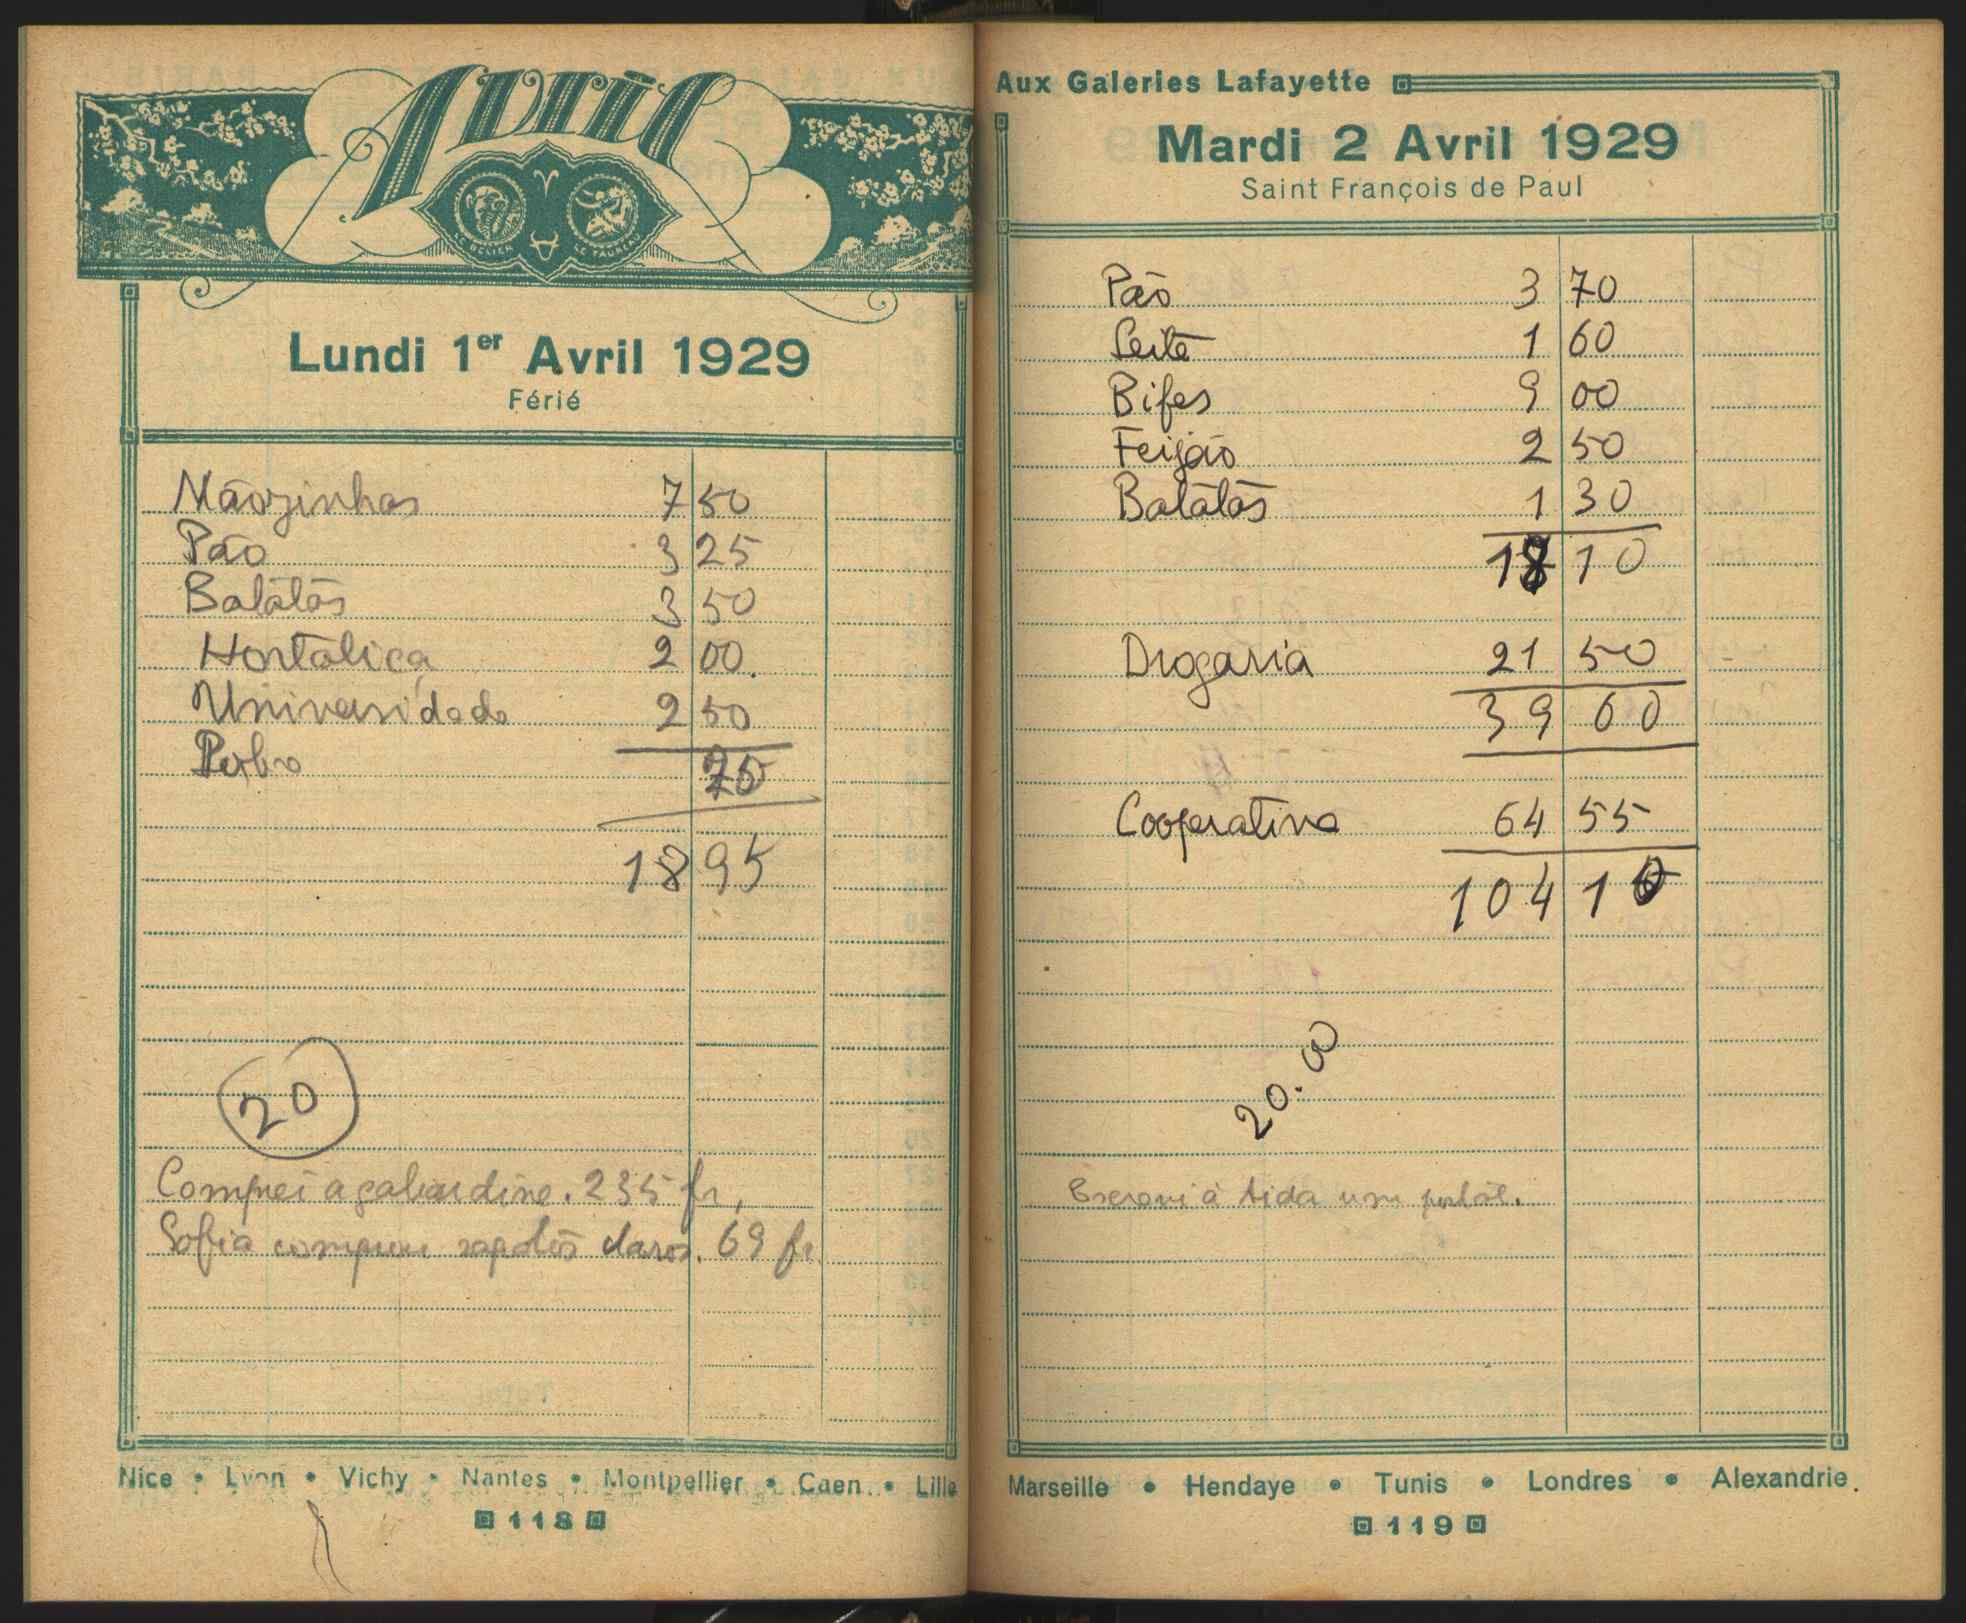 Avril
LE BÉLIER LE TAUREAU
Lundi 1er Avril 1929
Férié
Mãozinhas 7 50
Pão 3 25
Batatas 3 50
Hortaliça 2 00
Universidade 2 50
75
18 95
20
Comprei a gabardine. 235 fr,
Sofia comprou sapatos claros. 69 fr.
Nice • Lyon • Vichy • Nantes • Montpellier • Caen • Lille
118
Aux Galeries Lafayette
Mardi 2 Avril 1929
Saint François de Paul
Pão 3 70
Leite 1 60
Bifes 9 00
Feijão 2 50
Batatas 1 30
18 10
Drogaria 21 50
39 60
Cooperativa 64 55
104 10
20.00
Escrevi à Aida um postal.
Marseille • Hendaye • Tunis • Londres • Alexandrie
119